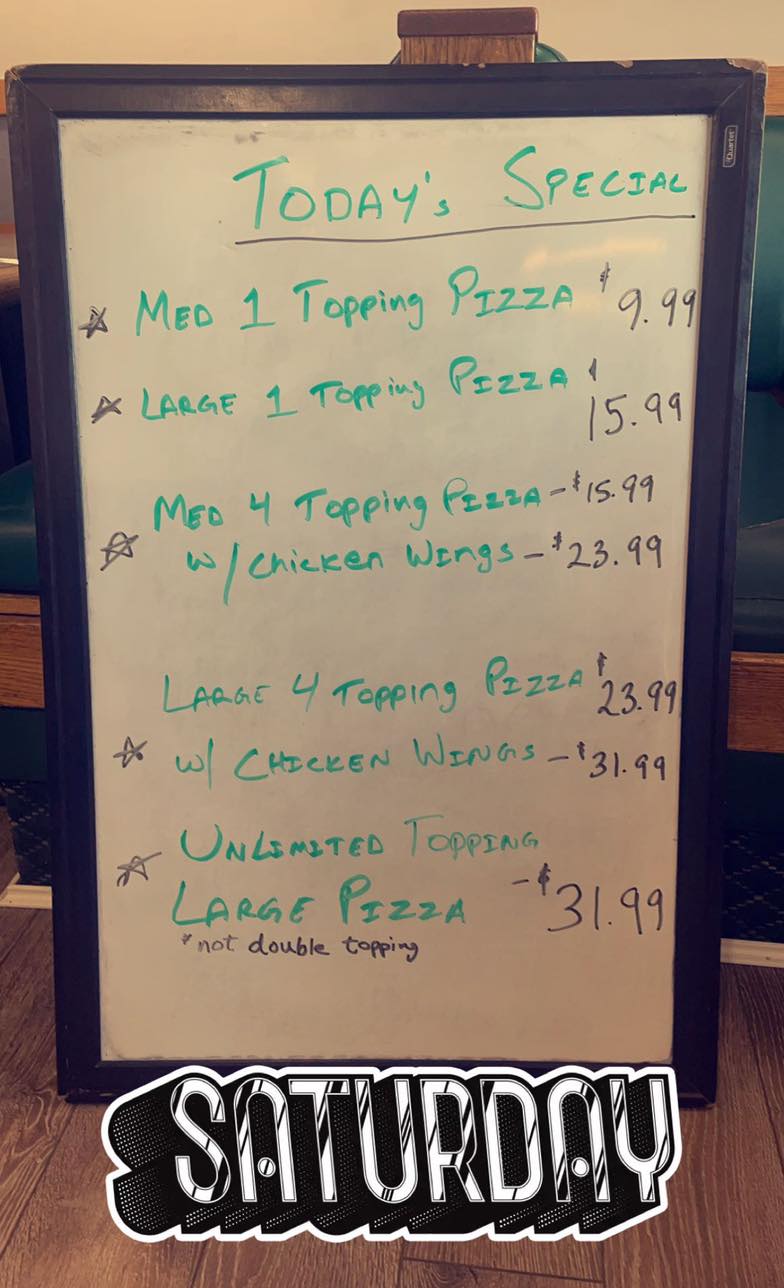 Quartet
TODAY's SPECIAL
☆ MED 1 Topping PIZZA $9.99
☆ LARGE 1 Topping PIZZA $15.99
MED 4 Topping PIZZA - $15.99
☆ w/ Chicken Wings - $23.99
LARGE 4 Topping PIZZA $23.99
☆ w/ CHICKEN WINGS - $31.99
☆ UNLIMITED TOPPING
LARGE PIZZA - $31.99
*not double topping
SATURDAY